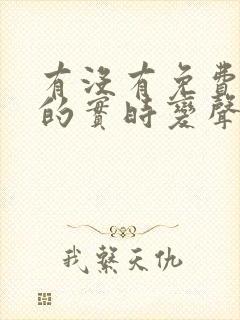 有沒有免費
的實時變聲
我繫天仇